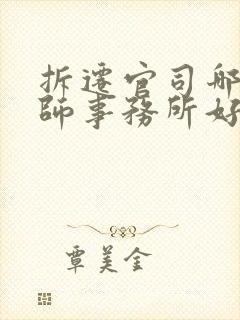 拆遷官司哪
師事務所好
覃美金